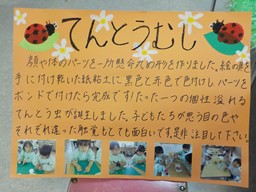 てんとうむし
顔や体のパーツを一つ一つ懸命丸め形を作りました。絵の具を
手に付け乾いた紙粘土に黒色と赤色で色付けしパーツを
ボンドで付けたら完成です!たった一つの個性溢れる
てんとう虫が誕生しました。子どもたちが思う目の色や
それぞれ違った触覚もとても面白いです。是非注目して下さい。